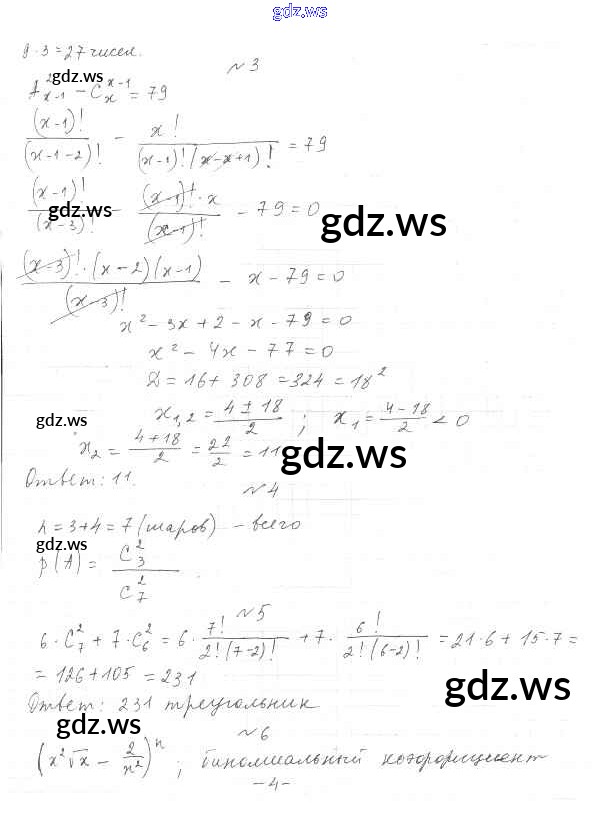 gdz.ws
9·3=27 чисел.
gdz.ws
№3
A²ₓ₋₁ − Cₓˣ⁻¹ = 79
(x−1)!/(x−1−2)! − x!/((x−1)!(x−x+1)!) = 79
(x−1)!/(x−3)! − (x−1)!·x/(x−1)! − 79=0
gdz.ws
gdz.ws
(x−3)!·(x−2)(x−1)/(x−3)! − x − 79=0
x² − 3x + 2 − x − 79=0
x² − 4x − 77=0
D=16+308=324=18²
gdz.ws
x₁,₂ = (4±18)/2 ; x₁ = (4−18)/2 < 0
x₂ = (4+18)/2 = 22/2 = 11
gdz.ws
Ответ: 11.
№4
n=3+4=7 (шаров) – всего
gdz.ws
p(A) = C₃²/C₇²
№5
6·C₇² + 7·C₆² = 6·7!/(2!(7−2)!) + 7·6!/(2!(6−2)!) = 21·6+15·7=
=126+105=231
gdz.ws
Ответ: 231 треугольник
gdz.ws
№6
(x²√x − 2/x²)ⁿ ; биномиальный коэффициент
–4–